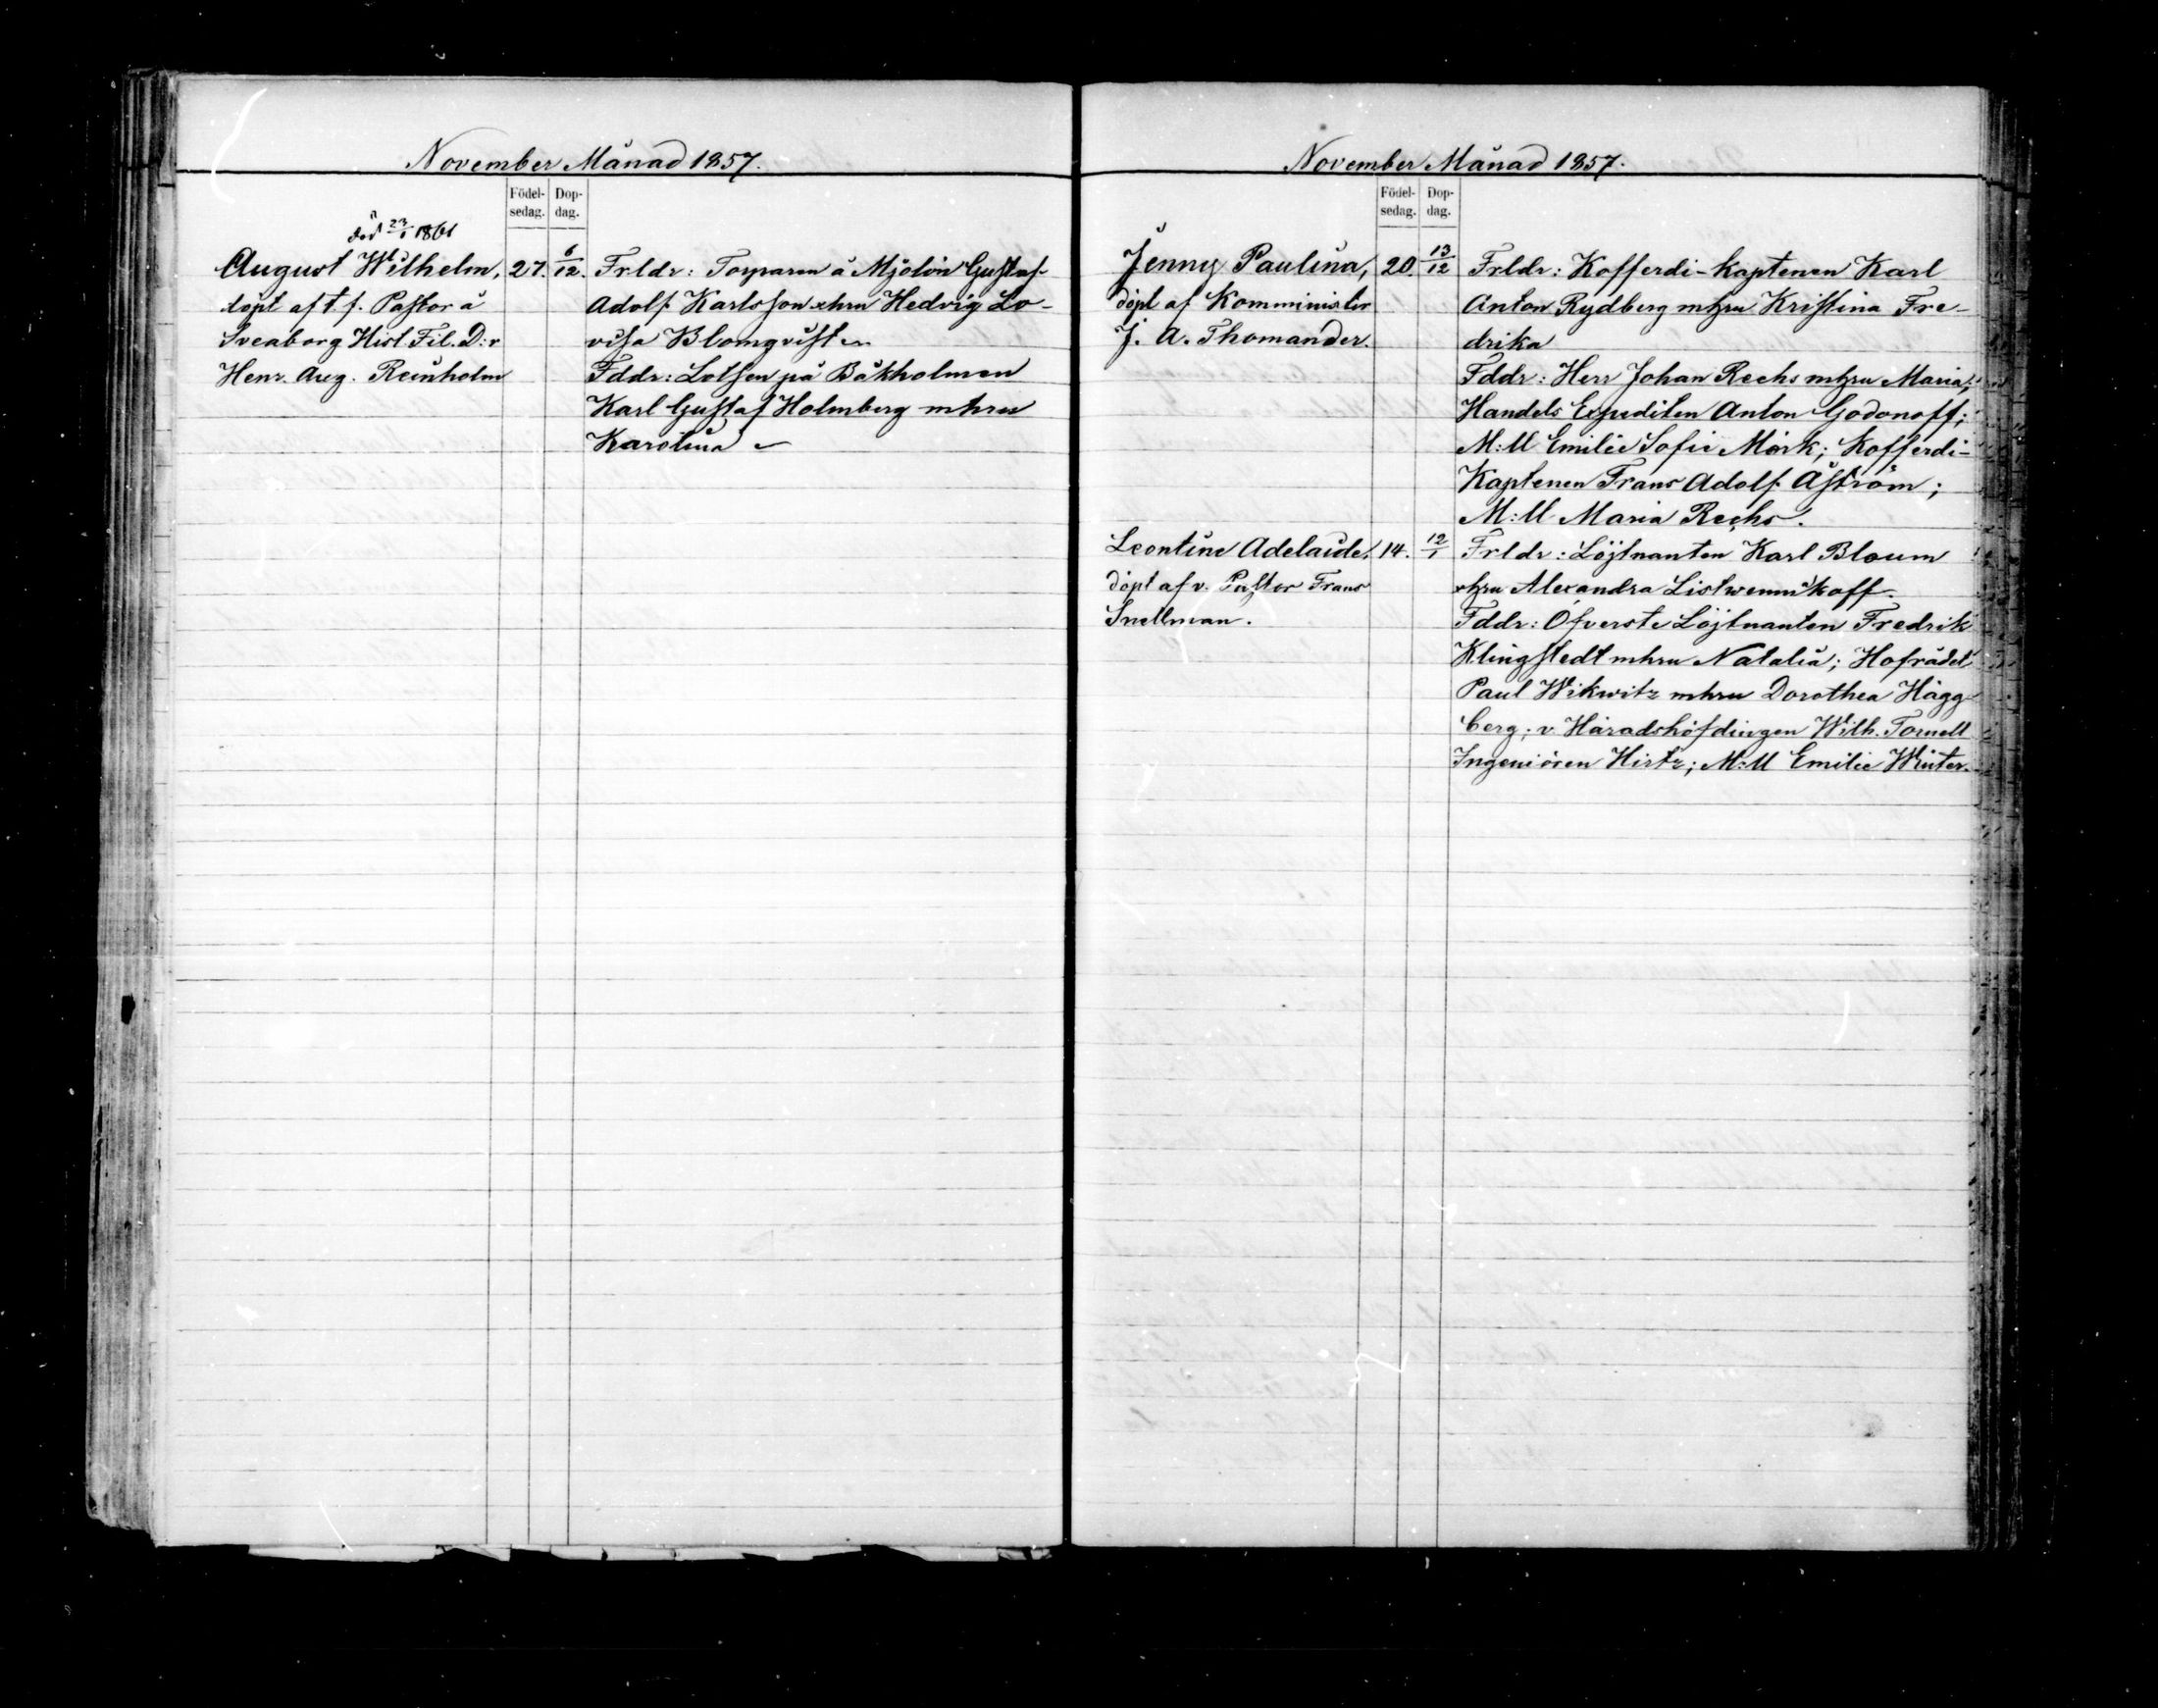 November Månad 1857.
Födel-
sedag.
Dop-
dag.
död 23/1 1861
August Wilhelm, 27. 6/12. Frldr: Torparen å Mjölön Gustaf
döpt af t. f. Pastor å Adolf Karlsson ohru Hedvig Lo-
Sveaborg Hist Fil. D:r visa Blomqvist
Henr. Aug. Reinholm Fddr: Lotsen på Båkholmen
Karl Gustaf Holmberg mhru
Karolina
November Månad 1857.
Födel-
sedag.
Dop-
dag.
Jenny Paulina, 20. 13/12 Frldr: Kofferdi-kaptenen Karl
döpt af Komminister Anton Rydberg mhru Kristina Fre-
J. A. Thomander. drika
Fddr: Herr Johan Rechs mhru Maria;
Handels Expediten Anton Godonoff;
M:ll Emilie Sofie Mörk; Kofferdi-
Kaptenen Frans Adolf Åström;
M:ll Maria Rechs.
Leontine Adelaide, 14. 12/1 Frldr: Löjtnanten Karl Bloum
döpt af v. Pastor Frans ohru Alexandra Listwennikoff.
Snellman. Fddr: Öfverste Löjtnanten Fredrik
Klingstedt mhru Natalia; Hofrådet
Paul Wikwitz mhru Dorothea Hägg-
berg; v. Häradshöfdingen Wilh. Tornell
Ingeniören Hirtz; M:ll Emilie Winter.